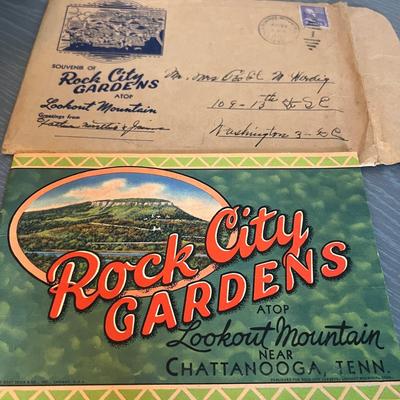 SOUVENIR OF
Rock City
GARDENS
ATOP
Lookout Mountain
Greetings from
Mr. Mrs M
109-13th St SE
Washington 3-DC
Rock City
GARDENS
ATOP
Lookout Mountain
NEAR
CHATTANOOGA, TENN.